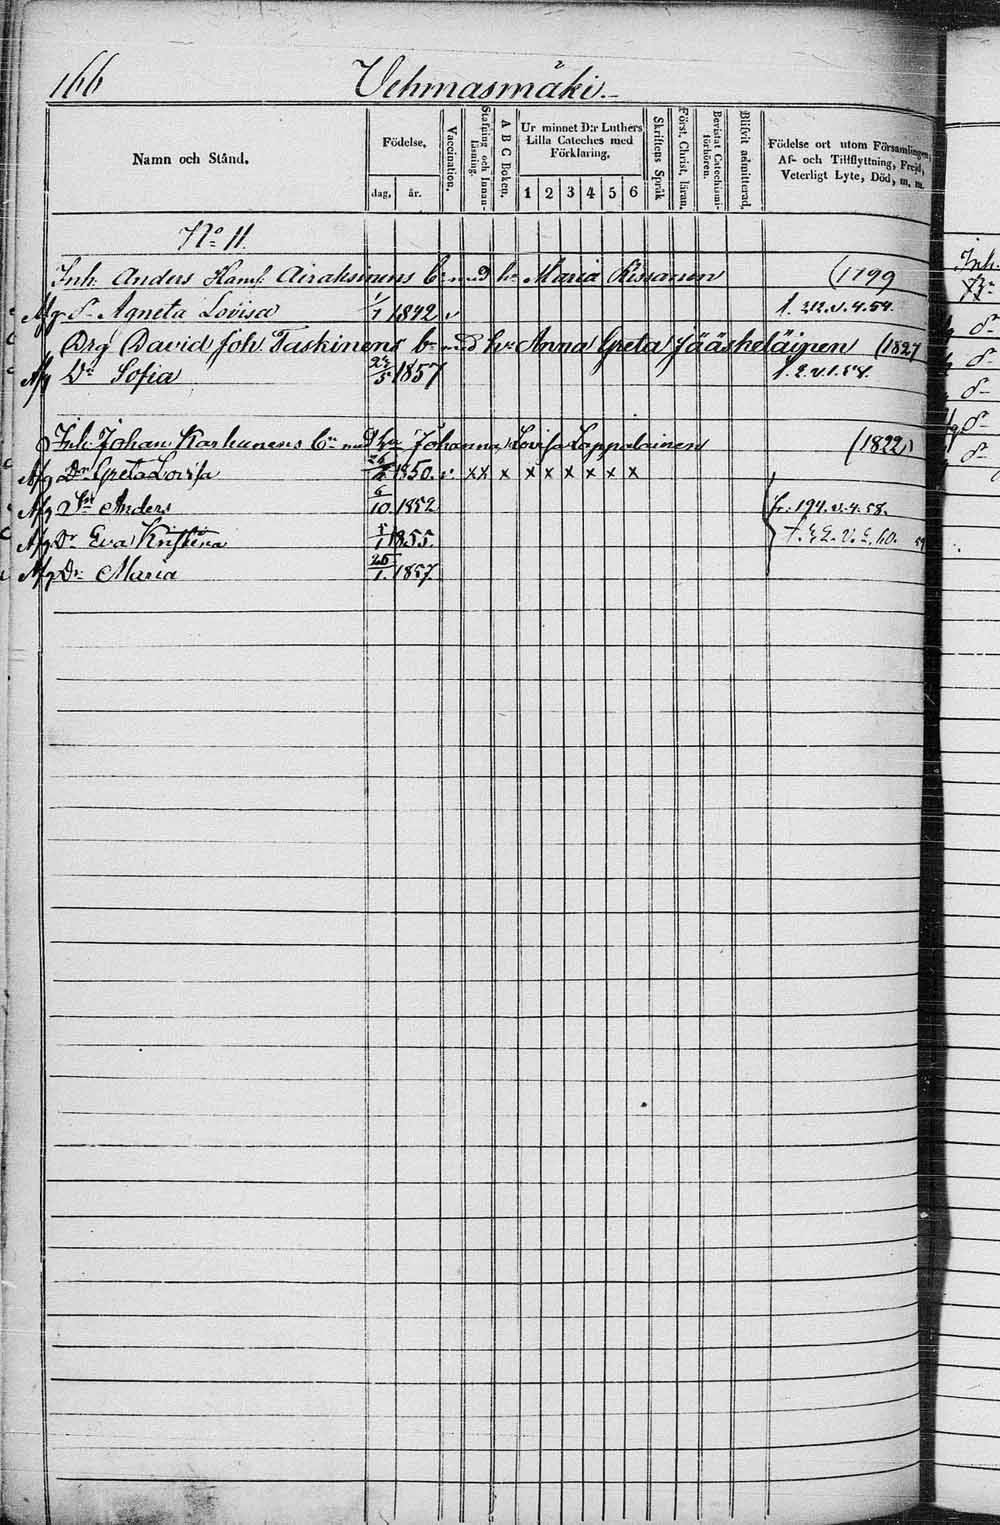 166 Vehmasmäki.
Namn och Stånd.
Födelse,
dag, år.
Vaccination.
Stafning och Innanläsning.
A B C Boken.
Ur minnet D:r Luthers Lilla Cateches med Förklaring,
1 2 3 4 5 6
Skriftens Språk
Först. Christ. läran.
Bevistat Catechismiförhören.
Blifvit admitterad.
Födelse ort utom Församlingen, Af- och Tillflyttning, Frejd, Veterligt Lyte, Död, m. m.
No 11.
Inh. Anders Airaksinens b: med h: Maria Kissanen (1799
Afg d: Agneta Lovisa 1/1 1842 v 1. 212. v. 4. 54.
Drg David Joh Taskinens b: med h: Anna Greta Jääskeläinen (1827
Afg Dr Sofia 1857
Inh: Johan Karhunens b: med h: Johanna Lovisa Lappalainen (1822)
Afg Dr Greta Lovisa 1850. v. x x x x x x x x x
Afg Sn Anders 6/10 1852 fr. 194. v. 4. 58.
Afg Dr Eva Kristina 1855
Afg Dr Maria 25/1. 1857.